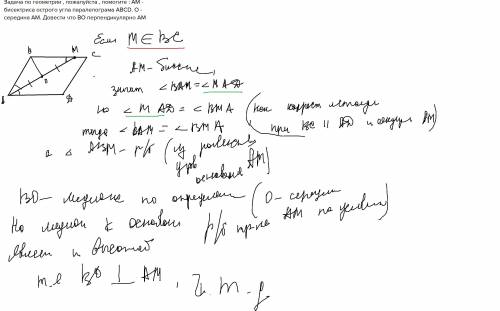 Задача по геометрии , пожалуйста , помогите : AM -
бисектриса острого угла паралелограма ABCD. О -
середина АМ. Довести что ВО перпендикулярно АМ
Если M ∈ BC
B M C
AM - биссе
значит ∠BAM = ∠MAD
O
но ∠MAD = ∠BMA (как накрест лежащи
A D
при BC || AD и секущ AM)
тогда ∠BAM = ∠BMA
а △ ABM - р/б (из равенств
углов
основания AM)
BO - медиана по определен (O - середина
AM по условию)
Но медиан к основан р/б
являет и высотой
т.е BO ⊥ AM , ч. т. д